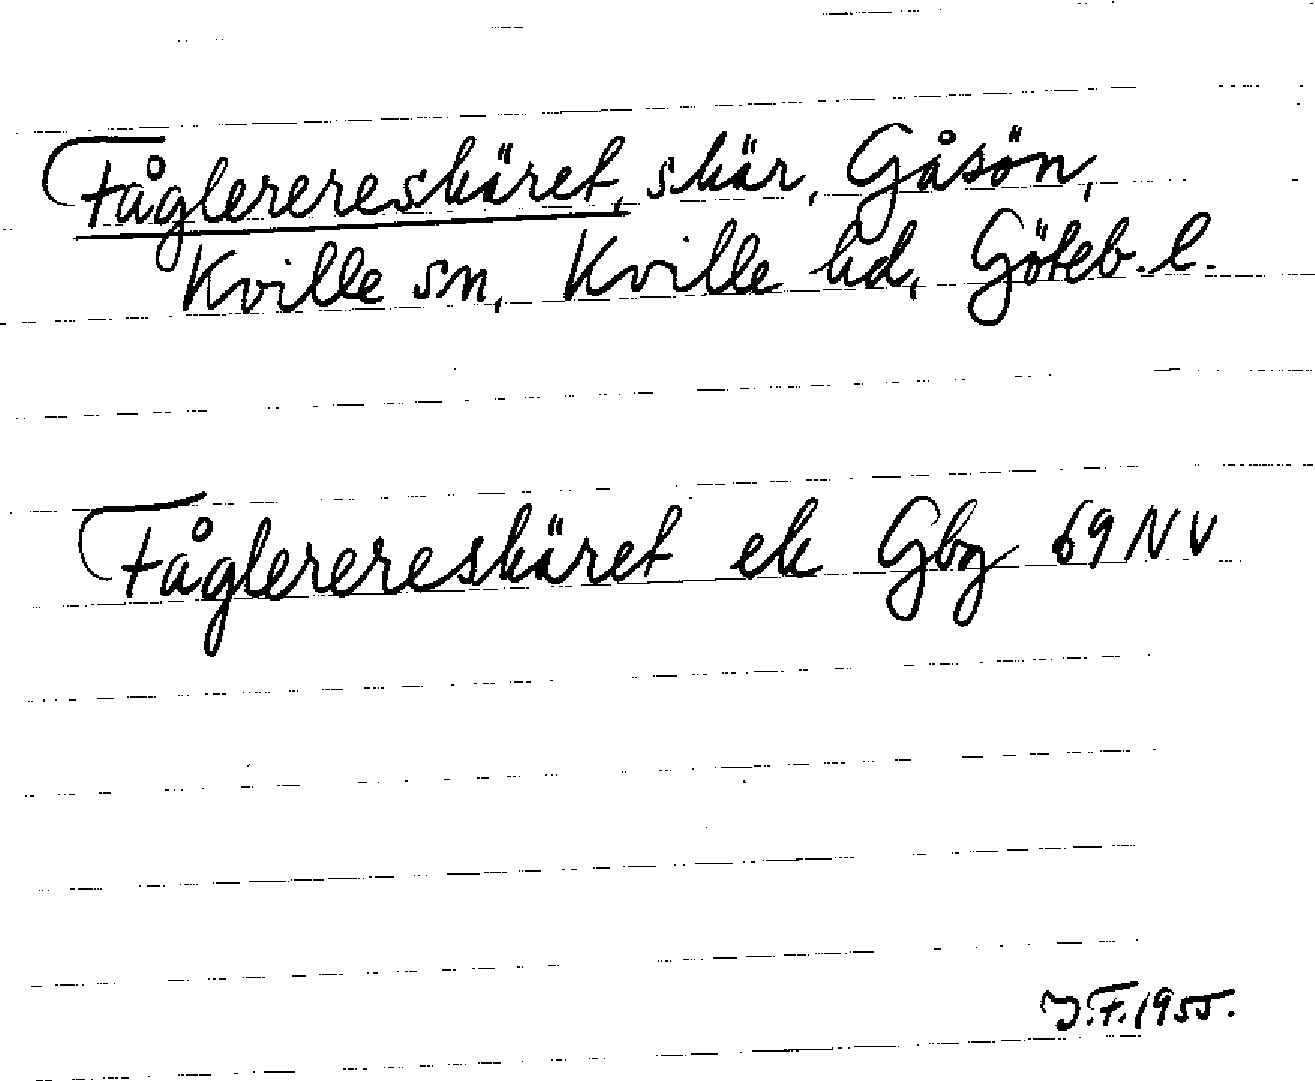 Fåglerereskäret, skär, Gåsön,
Kville sn, Kville hd, Göteb. l.
Fåglerereskäret ek Gbg 69 NV
J.F. 1955.